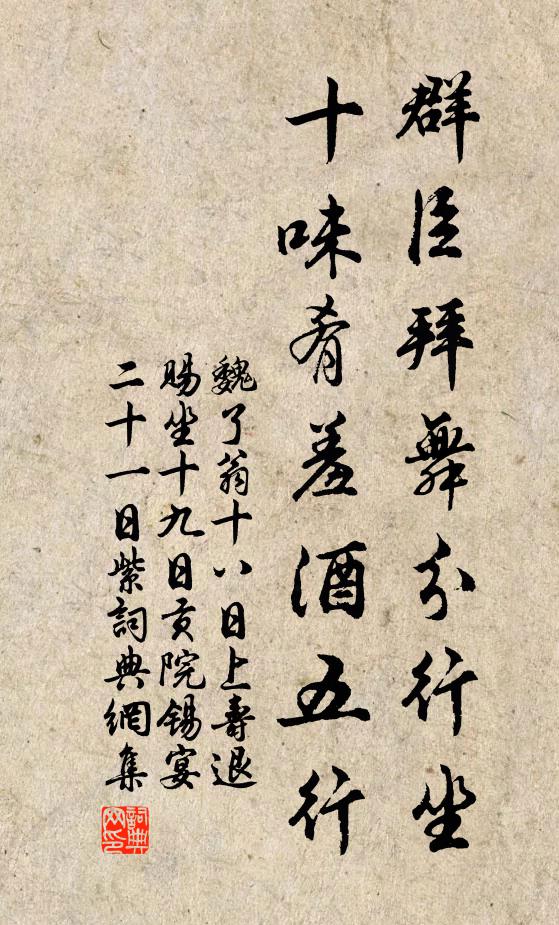 群臣拜舞分行坐
十味肴羞酒五行
魏了翁十八日上壽退
賜坐十九日貢院錫宴
二十一日紫詞典網集
詞典
网印